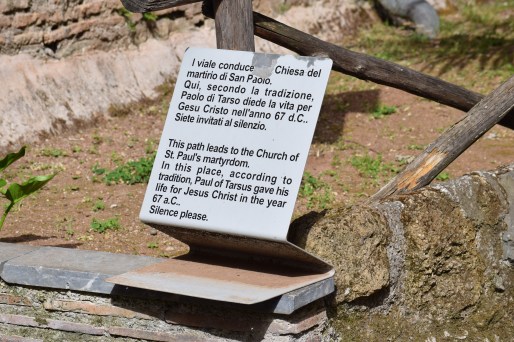 I viale conduce Chiesa del
martirio di San Paolo.
Qui, secondo la tradizione,
Paolo di Tarso diede la vita per
Gesu Cristo nell'anno 67 d.C..
Siete invitati al silenzio.
This path leads to the Church of
St. Paul's martyrdom.
In this place, according to
tradition, Paul of Tarsus gave his
life for Jesus Christ in the year
67 a.C..
Silence please.